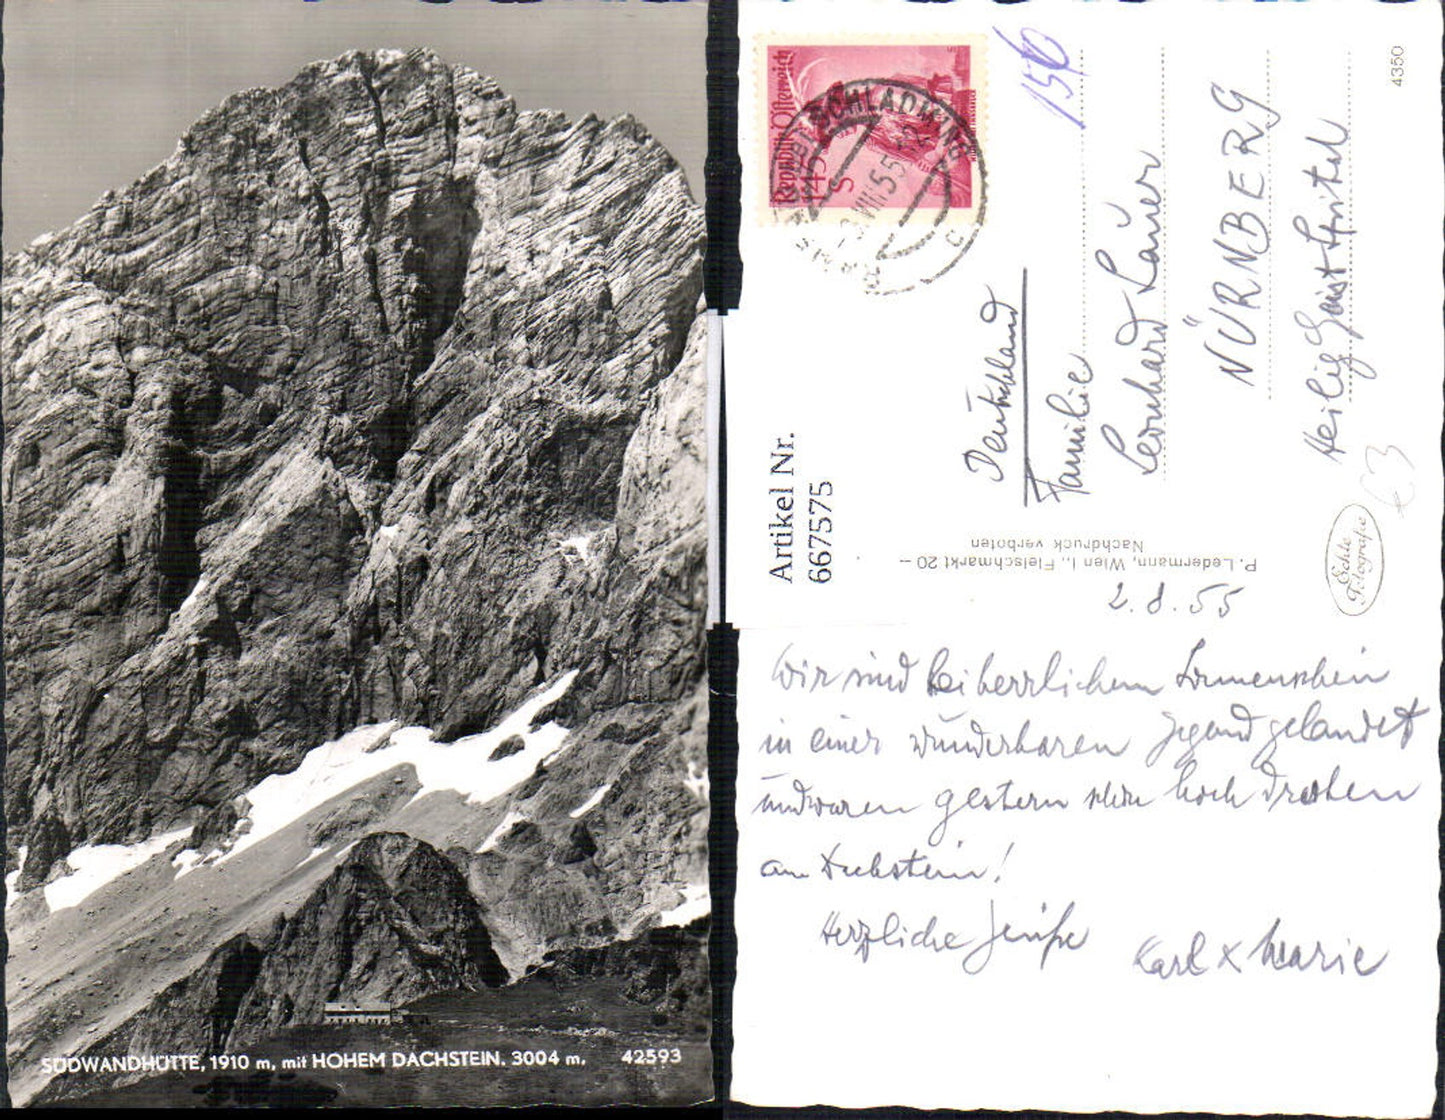 SÜDWANDHÜTTE, 1910 m, mit HOHEM DACHSTEIN. 3004 m. 42593
Republik Österreich
1·45
S
SCHLADMING
VIII.55
156
4350
Deutschland
Familie
Leonhard Lauer
NÜRNBERG
Heilig Geist Spital
€3
Artikel Nr.
667575
P. Ledermann, Wien I., Fleischmarkt 20 –
Nachdruck verboten
Echte
Fotografie
2.8.55
Wir sind bei herrlichem Sonnenschein
in einer wunderbaren Gegend gelandet
und waren gestern schon hoch droben
am Dachstein!
Herzliche Grüße
Karl & Marie